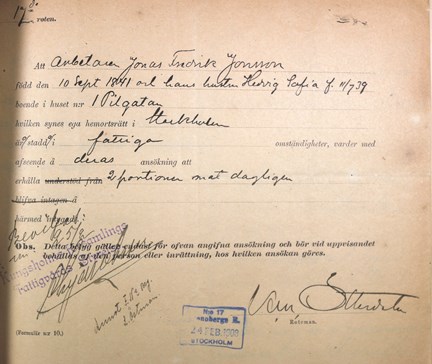 17
roten.
Att Arbetaren Jonas Fredrik Jonsson
född den 10 Sept 1841 och hans hustru Hedvig Sofia f. 11/7 39
boende i huset n:r 1 Pilgatan
hvilken synes ega hemortsrätt i Stockholm
är stadd i fattiga omständigheter, varder med
afseende å deras ansökning att
erhålla understöd från 2 portioner mat dagligen
blifva intagen å
härmed intygadt.
Obs. Detta betyg gäller endast för ofvan angifna ansökning och bör vid uppvisandet
behållas af den person eller inrättning, hos hvilken ansökan göres.
Kungsholms församlings
fattigvårds
Roteman.
N:o 17
24 FEB.
STOCKHOLM
(Formulär nr 10.)